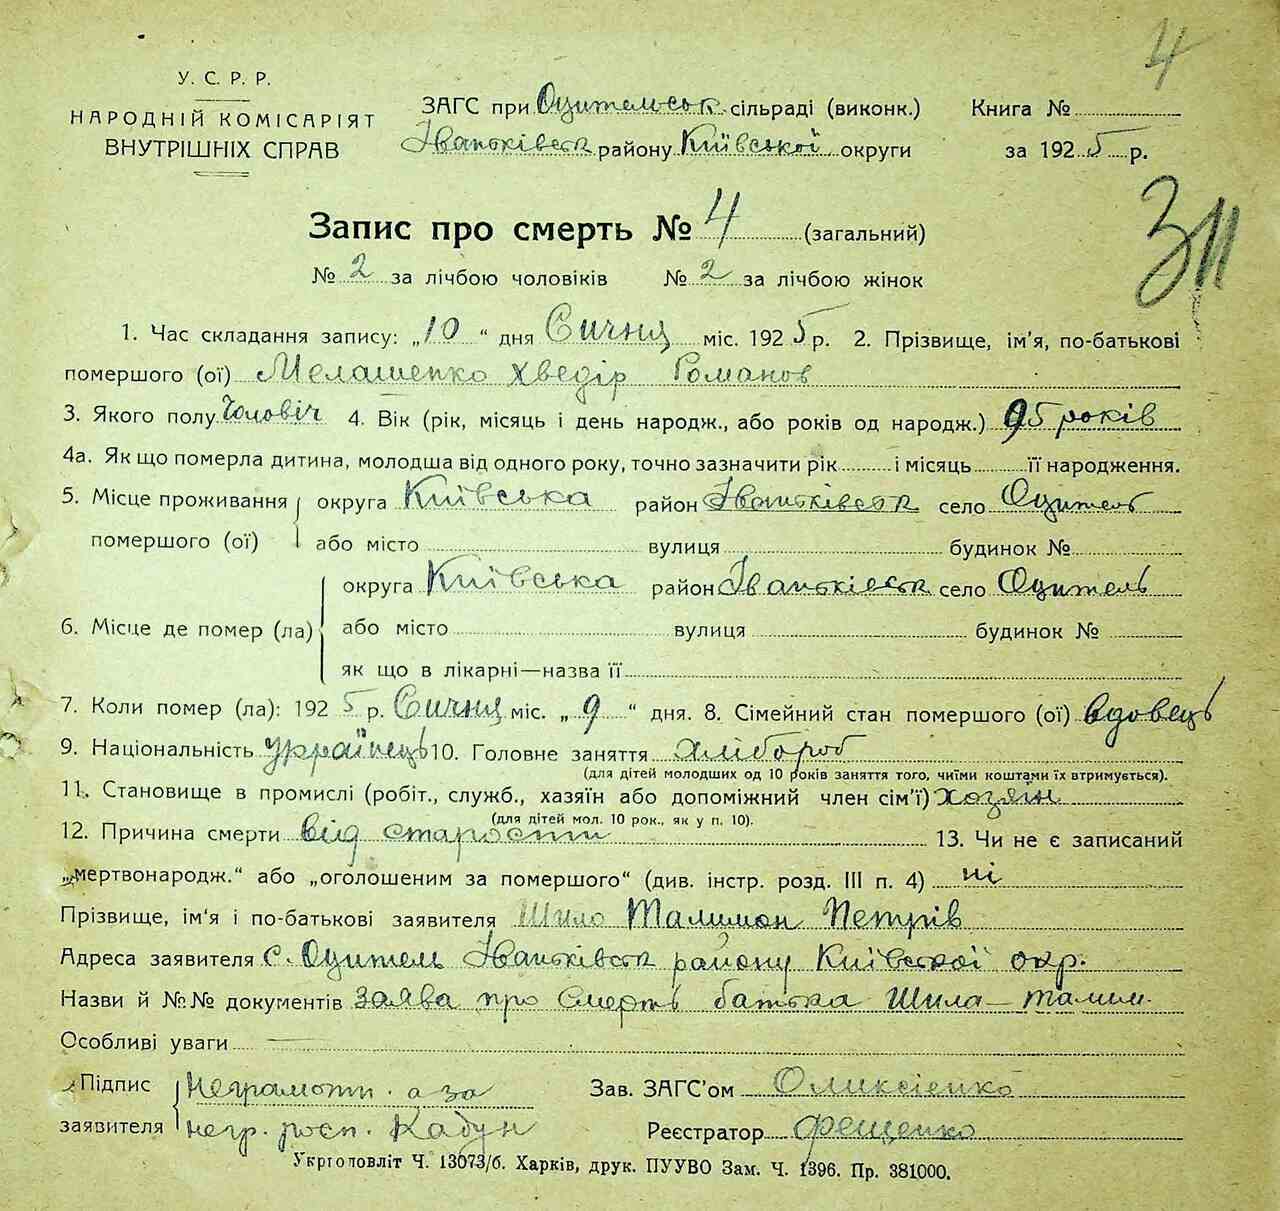 4
У. С. Р. Р.
НАРОДНІЙ КОМІСАРІЯТ
ВНУТРІШНІХ СПРАВ
ЗАГС при Оцительськ. сільраді (виконк.)
Іваньківськ району Київської округи
Книга №
за 1925 р.
311
Запис про смерть № 4 (загальний)
№ 2 за лічбою чоловіків № 2 за лічбою жінок
1. Час складання запису: „10“ дня Січня міс. 1925 р. 2. Прізвище, ім'я, по-батькові
помершого (ої) Мелашенко Хведір Романов
3. Якого полу Чоловіч 4. Вік (рік, місяць і день народж., або років од народж.) 95 років
4а. Як що померла дитина, молодша від одного року, точно зазначити рік і місяць її народження.
5. Місце проживання помершого (ої) округа Київська район Іваньківськ село Оцитель
або місто вулиця будинок №
6. Місце де помер (ла) округа Київська район Іваньківськ село Оцитель
або місто вулиця будинок №
як що в лікарні—назва її
7. Коли помер (ла): 1925 р. Січня міс. „9“ дня. 8. Сімейний стан помершого (ої) вдовець
9. Національність українець 10. Головне заняття хлібороб
(для дітей молодших од 10 років заняття того, чиїми коштами їх втримується).
11. Становище в промислі (робіт., служб., хазяїн або допоміжний член сім'ї) хозяїн
(для дітей мол. 10 рок., як у п. 10).
12. Причина смерти від старости 13. Чи не є записаний
„мертвонародж.“ або „оголошеним за помершого“ (див. інстр. розд. III п. 4) ні
Прізвище, ім'я і по-батькові заявителя Шило Талимон Петрів
Адреса заявителя с. Оцитель Іваньківськ району Київської окр.
Назви й №№ документів заява про смерть батька Шила-талим.
Особливі уваги —
Підпис заявителя неграмотн. а за
негр. росп. Кабун
Зав. ЗАГС'ом Оликсієнко
Реєстратор Фещенко
Укрголовліт Ч. 13073/б. Харків, друк. ПУУВО Зам. Ч. 1396. Пр. 381000.